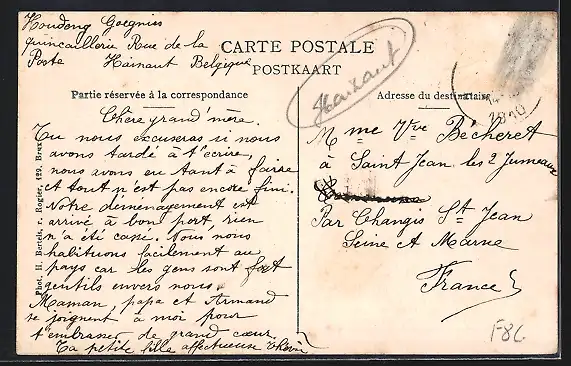 Houdeng Goegnies
quincaillerie Rue de la
Poste Hainaut Belgique
CARTE POSTALE
POSTKAART
Hainaut
Partie réservée à la correspondance
Adresse du destinataire
Chère grand'mère.
Tu nous excuseras si nous
avons tardé à t'écrire,
nous avons eu tant à faire
et tout n'est pas encore fini.
Notre déménagement est
arrivé à bon port, rien
n'a été cassé. Nous nous
habituons facilement au
pays car les gens sont fort
gentils envers nous.
Maman, papa et Armand
se joignent à moi pour
t'embrasser de grand cœur
Ta petite fille affectueuse
Mme Vve Bécheret
à Saint Jean les 2 Jumeaux
Par Changis St Jean
Seine et Marne
France
1910
Phot. H. Bertels, r. Rogier, 129, Brux
F86